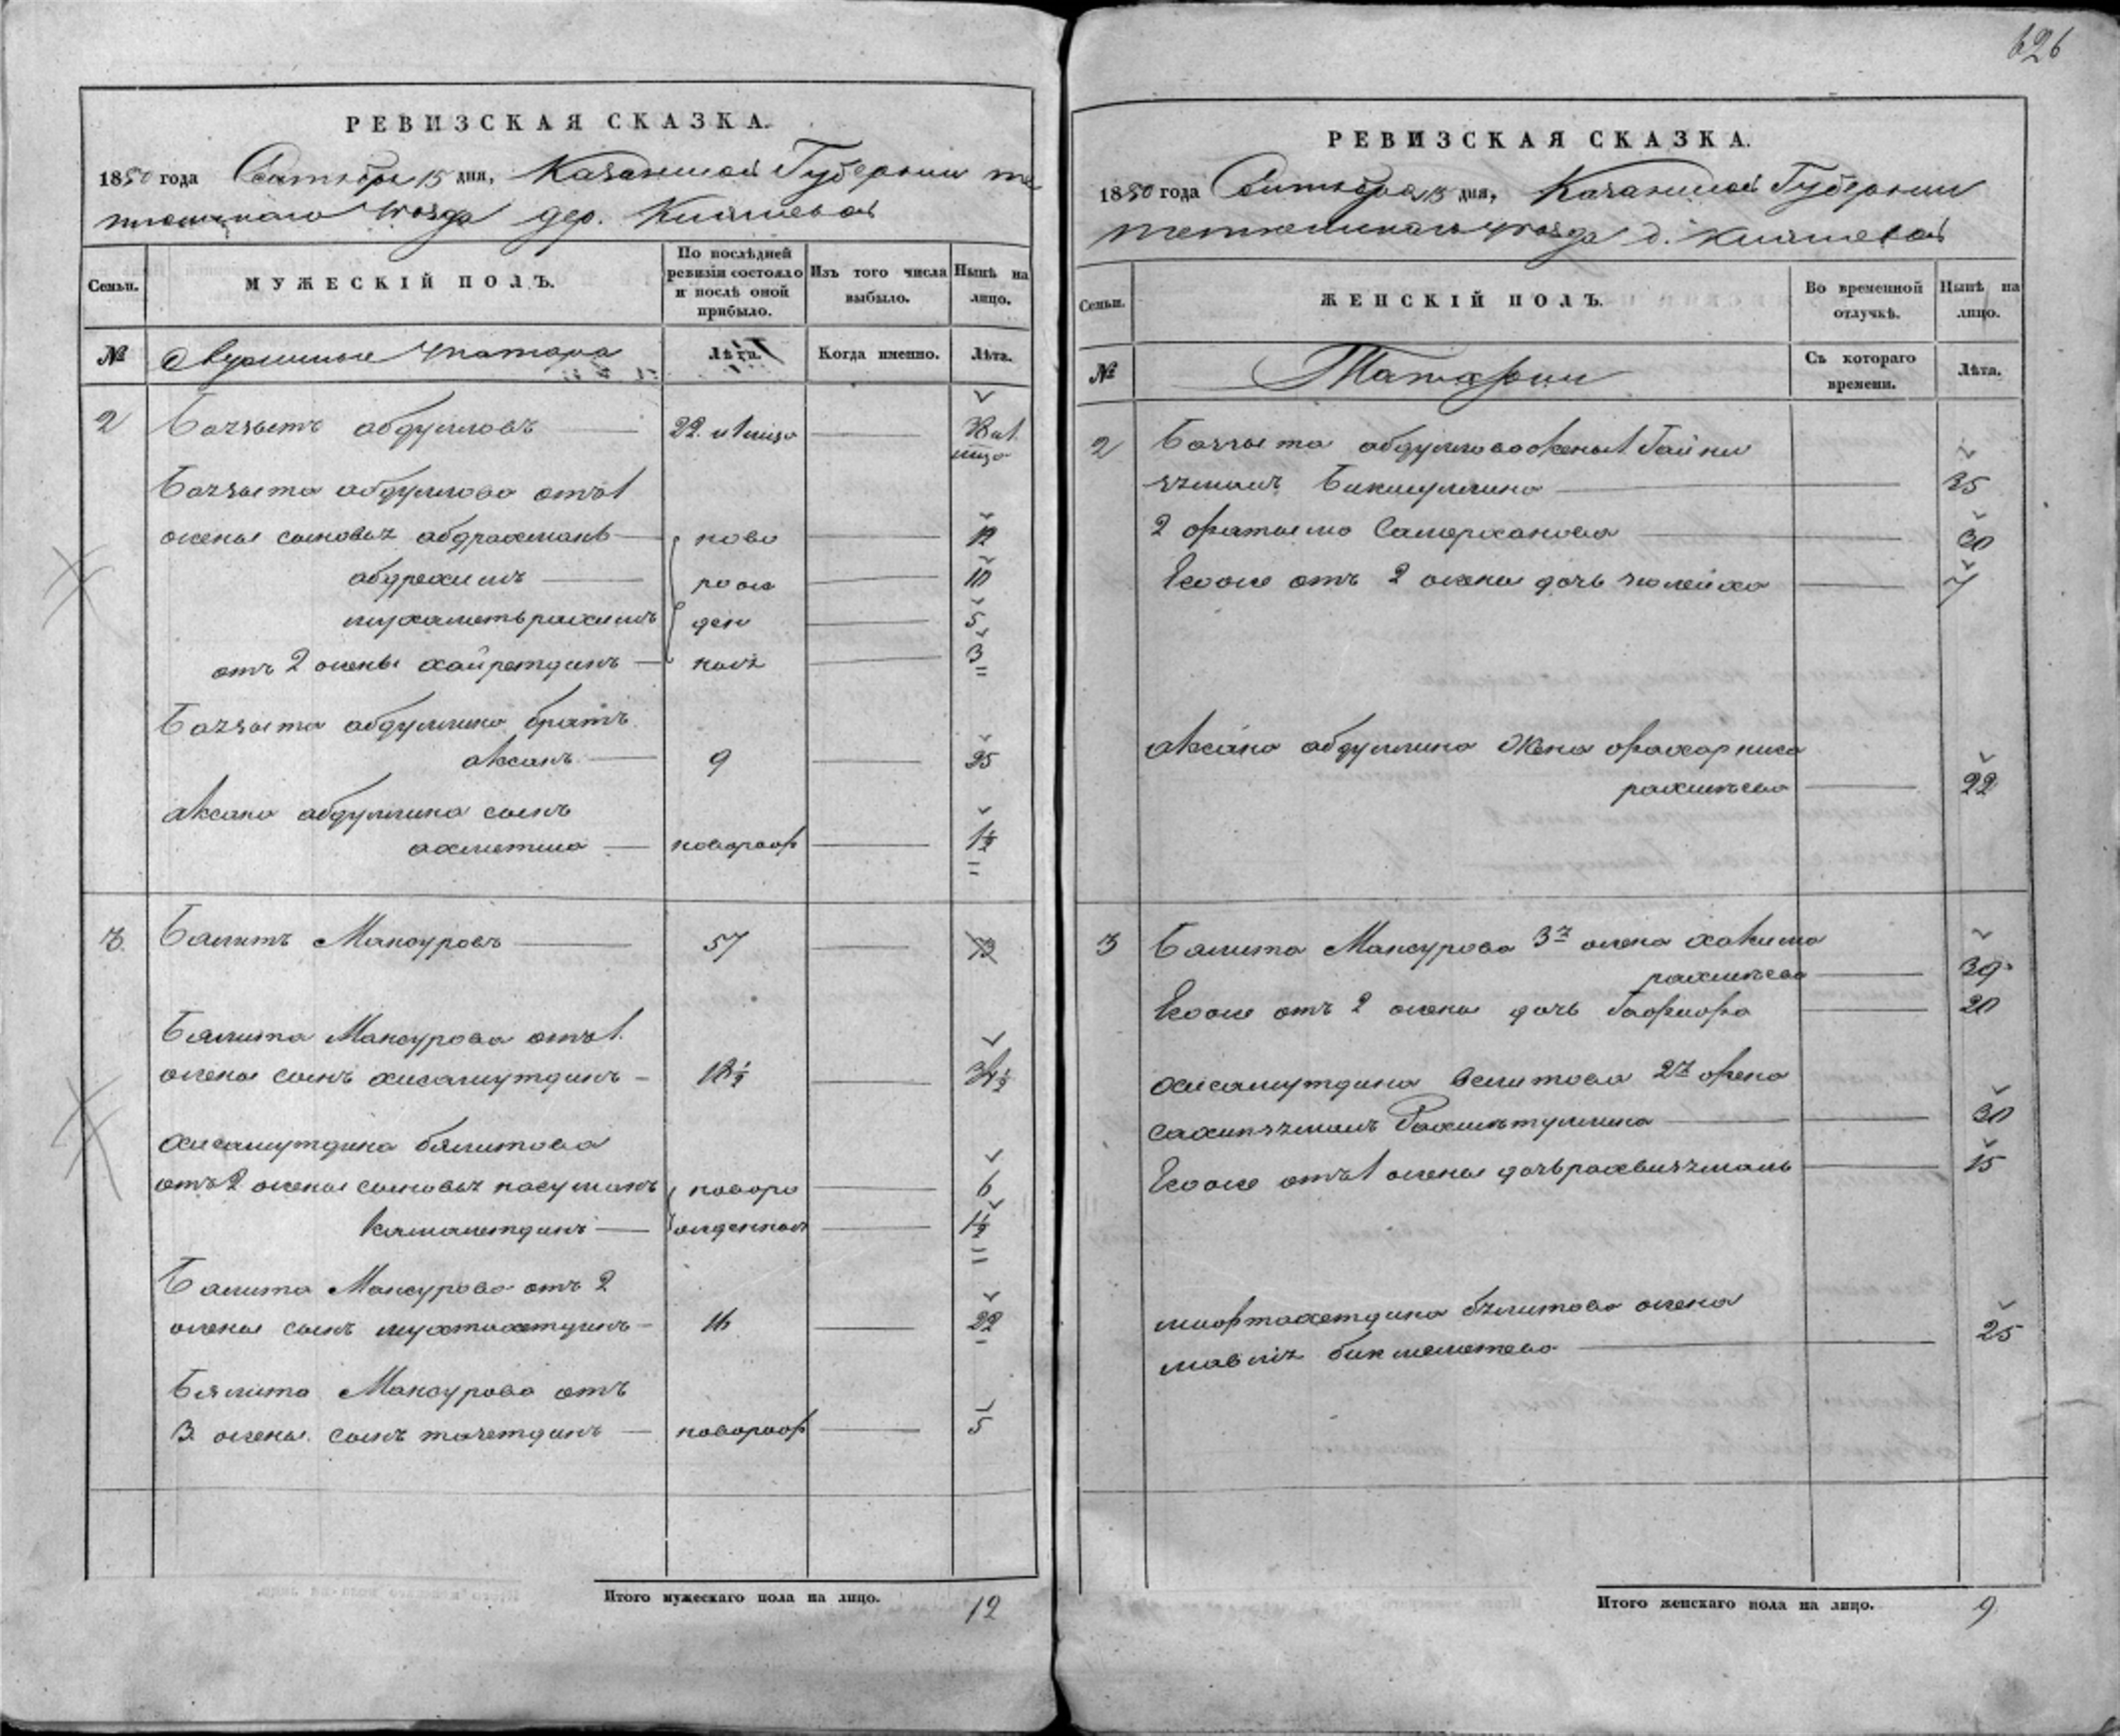 РЕВИЗСКАЯ СКАЗКА.
1850 года Сентября 15 дня, Казанской Губернии те
тюшскаго уезда дер. Кияшевой
Семьи.
МУЖЕСКІЙ ПОЛЪ.
По послѣдней ревизіи состояло и послѣ оной прибыло.
Изъ того числа выбыло.
Нынѣ на лицо.
№
татара
Лѣта.
Когда именно.
Лѣта.
2 Баззытъ абдулловъ 22
Баззыта абдуллова отъ 1
жены сыновья абдрахманъ ново 12
абдрехимъ рож 10
мухаметьрахимъ ден 5
отъ 2 жены хайретдинъ ныя 3
Баззыта абдуллина братъ
аксанъ 9 25
аксана абдуллина сынъ
ахметша новорож 1½
3. Бялитъ Мансуровъ 57 73
Бялита Мансурова отъ 1
жены сынъ хисамутдинъ 18½ 34½
хисамутдина бялитова
отъ 2 жены сыновья насуманъ новоро 6
камалетдинъ жденныя 1½
Бялита Мансурова отъ 2
жены сынъ мухтахетдинъ 16 22
Бялита Мансурова отъ
3 жены сынъ тазетдинъ новорож 5
Итого мужескаго пола на лицо. 12
626
РЕВИЗСКАЯ СКАЗКА.
1850 года Сентября 15 дня, Казанской Губернии
тетюшскаго уезда д. Кияшевой
Семьи.
ЖЕНСКІЙ ПОЛЪ.
Во временной отлучкѣ.
Нынѣ на лицо.
№
Татарки
Съ котораго времени.
Лѣта.
2 Баззыта абдуллова жены 1 Гайни
язмалъ Бикмуллина 35
2 фатыма Самерханова 30
Его же отъ 2 жены дочь зюлейха 7
аксана абдуллина жена фахарниса
рахмѣева 22
3 Бялита Мансурова 3я жена хакима
рахмѣева 39
Его же отъ 2 жены дочь 20
хисамутдина бялитова 2я жена
сахипязмалъ Рахматуллина 30
Его же отъ 1 жены дочь рахвиязмаль 15
мифтахетдина бялитова жена
бикмеметева 25
Итого женскаго пола на лицо. 9